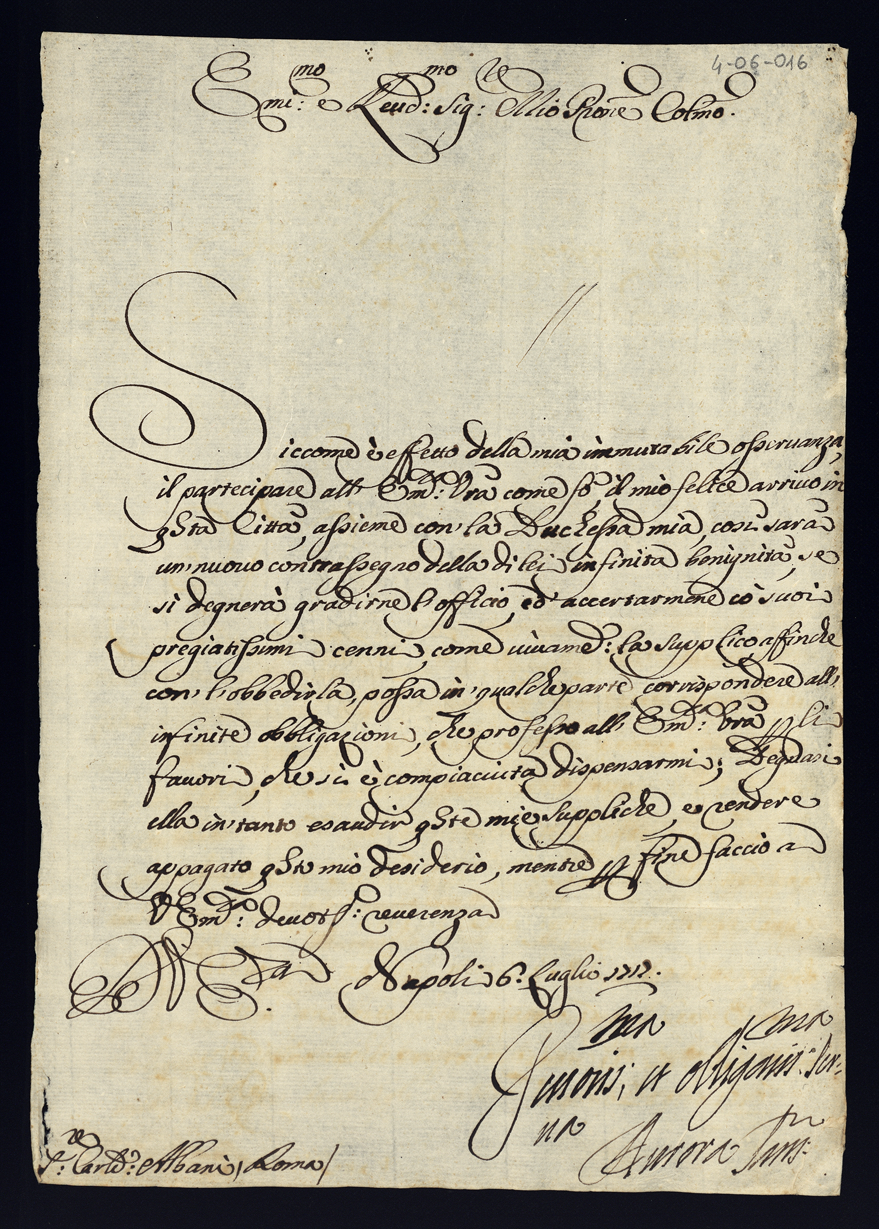 4-06-016
Emi:mo e Reud:mo Sig:re Mio Prone Colmo.
Siccome è effetto della mia immutabile osseruanza,
il partecipare all' Em:za Vra come fo, il mio felice arriuo in
qsta Città, assieme con la Duchessa mia, così sarà
un' nuouo contrassegno della di lei infinita benignità, se
si degnerà gradirne l'officio, ed' accertarmene cò suoi
pregiatissimi cenni, come uiuame:te la supplico, affinche
con' l'obbedirla, possa in' qualche parte corrispondere all'
infinite obbligazioni, che professo all' Em:za Vra p li
fauori, che si è compiaciuta dispensarmi; Degnasi
ella in' tanto esaudir qste mie suppliche, e rendere
appagato qsto mio desiderio, mentre p fine faccio a
V Em:za deuotss: reuerenza
Napoli 6. Luglio 1717.
et obligatis:ma Ser:
ua
Aurora San:
S:re Card: Albani, Roma/